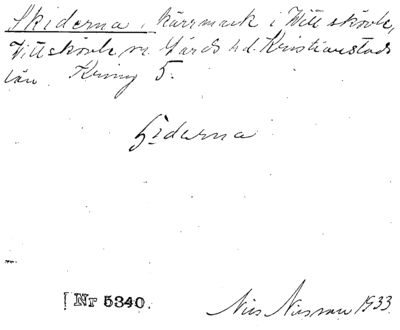 Skiderna, kärrmark i Vittskövle,
Vittskövle sn. Gärds hd. Kristianstads
län. Kring 5.
hiderna
Nr 5340. Nils Nilsson 1933.